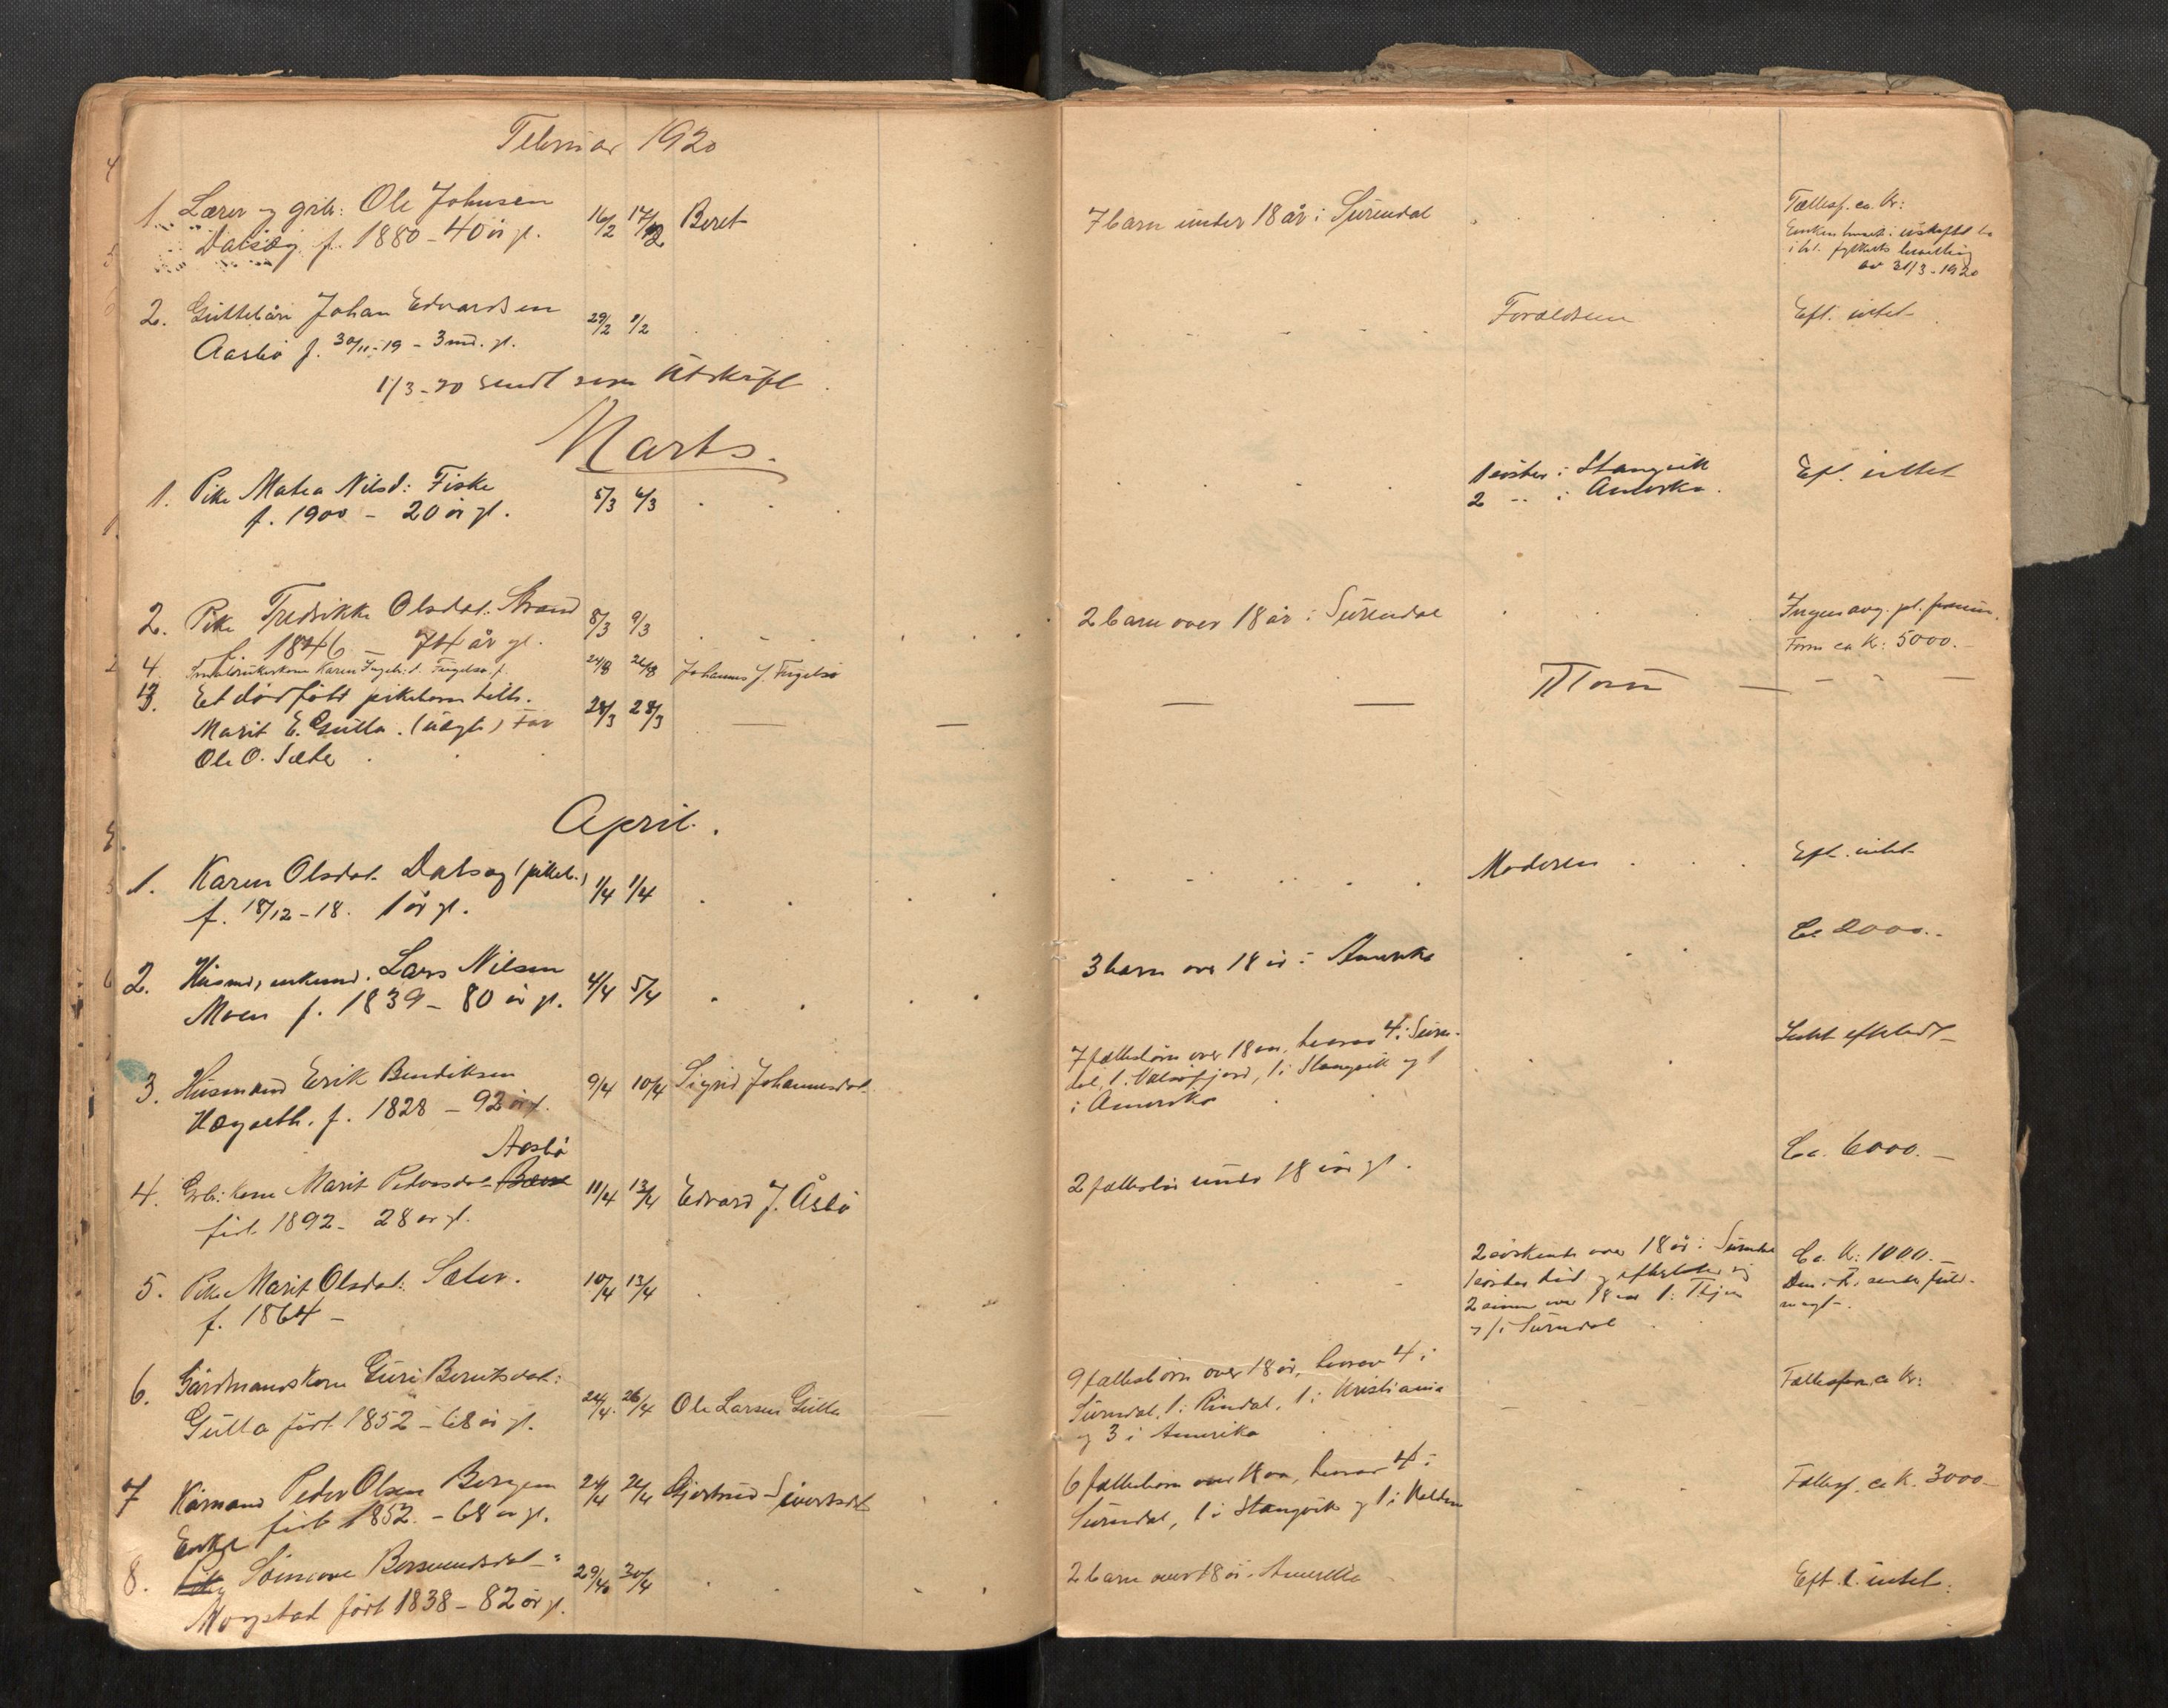 Februar 1920
1. Lærer og grbr: Ole Johnsen
Dalsæg f. 1880 - 40 år gl.
16/2 17/2 Beret
7 barn under 18 år i Surendal
Fællesf. ca. Kr:
Enken hensit. i uskiftet bo
i hl. fylkets bevilling
av 31/3 - 1920
2. Guttebarn Johan Edvardsen
Aasbø f. 30/11-19 - 3 md. gl.
29/2 1/2
Forældrene
Eft. intet
1/3-20 sendt som utskrift
Marts.
1. Pike Matea Nilsd: Fiske
f. 1900 - 20 år gl.
5/3 6/3
1 søster i Stangvik
2 -"- i Amerika.
Eft. intet
2. Pike Fredrikke Olsdat. Strand
f. 1846 - 74 år gl.
8/3 9/3
2 barn over 18 år i Surendal
Ingen avg. pl.
Form ca Kr: 5000.-
4. Karen Ingebr.d. Fugelsø f.
24/8 26/8 Johannes J. Fugelsø
3. Et dødfødt pikebarn tilh.
Marit E. Gulla. (uegte) Far
Ole O. Sæter
28/3 28/3
April.
1. Karen Olsdat. Dalsæg (pikeb.)
f. 18/12-18. 1 år gl.
1/4 1/4
Moderen
Eft. intet
2. Husmd, enkemd. Lars Nilsen
Moen f. 1839 - 80 år gl.
4/4 5/4
3 barn over 18 år i Amerika
Ca 2000.-
3. Husmand Erik Bendiksen
Hægaeth. f. 1828 - 92 år gl.
9/4 10/4 Sigrid Johannesdat.
7 fællesbørn over 18 aar, hvorav 4 i Suren-
dal, 1 i Valsøfjord, 1 i Stangvik og 1
i Amerika
Intet efterladt
Aasbø
4. Grbr: kone Marit Pedersdat.
født 1892 - 28 år gl.
11/4 13/4 Edvard J. Åsbø
2 fællesbør under 18 år gl.
Ca. 6000.-
5. Pike Marit Olsdat: Sæter.
f. 1864 -
10/4 13/4
2 søskende over 18 år i Surendal
1 søster død og efterlater sig
2 sønner over 18 aar 1 i
og 1 i Surendal
Ca. Kr: 1000.-
6. Gårdmandskone Guri Berntsdat:
Gulla født 1852 - 68 år gl.
24/4 26/4 Ole Larsen Gulla
9 fællesbørn over 18 år, hvorav 4 i
Surendal, 1 i Rindal, 1 i Kristiania
og 3 i Amerika
Fællesform. ca Kr:
7 Kårmand Peder Olsen Bergem
født 1852 - 68 år gl.
24/4 26/4 Gjertrud Sivertsdt
6 fællesbørn over 18 aar, hvorav 4 i
Surendal, 1 i Stangvik og 1 i Halden
Fællesf. ca K. 3000.-
8. Enke Bersvendsdat:
Mogstad født 1838 - 82 år gl.
29/4 30/4
2 barn over 18 år i Amerika
Eft. l. intet.